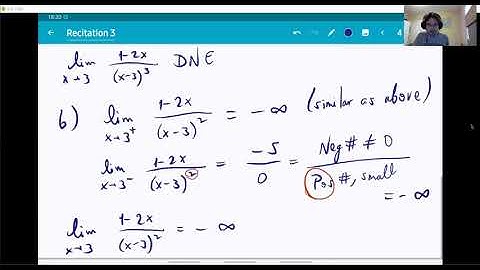 18:20
Recitation 3
lim x→3 1-2x/(x-3)³ DNE
6) lim x→3⁺ 1-2x/(x-3)² = -∞ (similar as above)
lim x→3⁻ 1-2x/(x-3)² = -5/0 = Neg # ≠ 0/Pos #, small = -∞
lim x→3 1-2x/(x-3)² = -∞